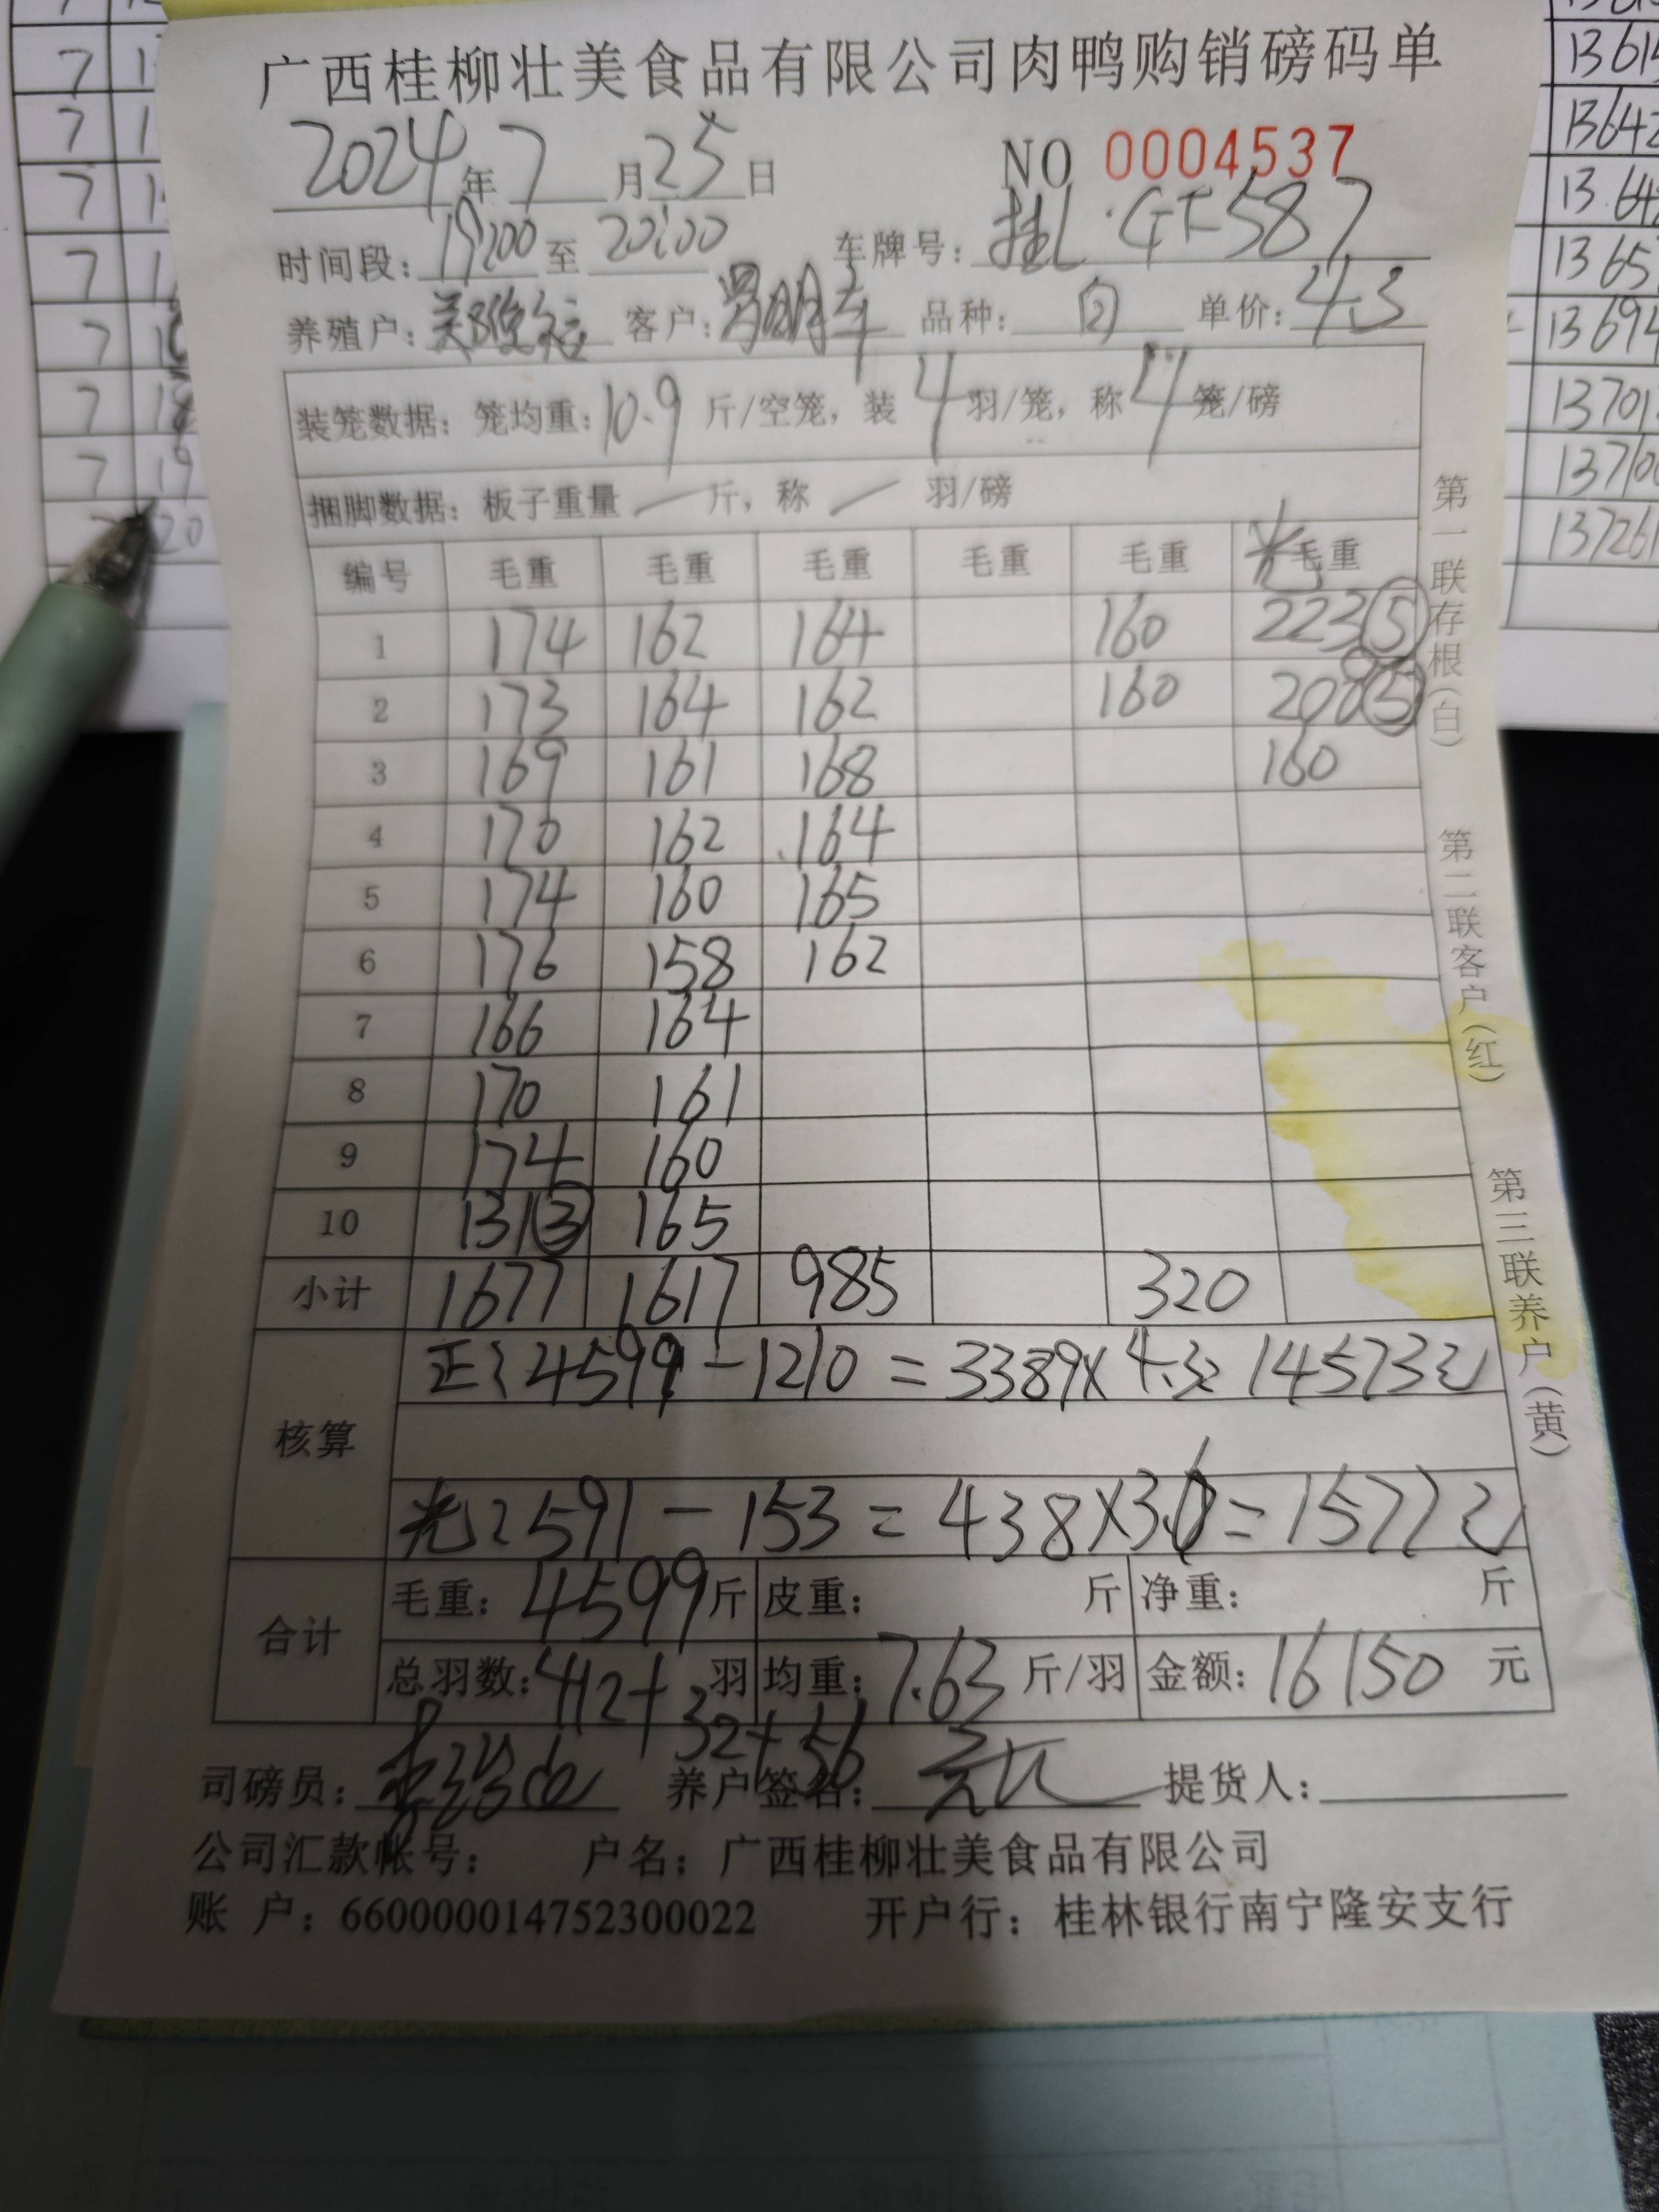 广西桂柳壮美食品有限公司肉鸭购销磅码单
2024年7月25日 NO 0004537
时间段：19:00至20:00 车牌号：桂L·GF587
养殖户： 客户： 品种： 单价：4.3
装笼数据：笼均重：10.9斤/空笼，装4羽/笼，称4笼/磅
捆脚数据：板子重量 — 斤，称 — 羽/磅
编号 毛重 毛重 毛重 毛重 毛重 光毛重
1 174 162 164 160 223⑤
2 173 164 162 160 208⑤
3 169 161 168 160
4 170 162 164
5 174 160 165
6 176 158 162
7 166 164
8 170 161
9 174 160
10 131③ 165
小计 1677 1617 985 320
核算
正：4599-1210=3389×4.3=14573元
光：591-153=438×3.6=1577元
合计
毛重：4599斤 皮重： 斤 净重： 斤
总羽数：412+32+56羽 均重：7.63斤/羽 金额：16150元
司磅员： 养户签名： 提货人：
公司汇款帐号： 户名：广西桂柳壮美食品有限公司
账 户：660000014752300022 开户行：桂林银行南宁隆安支行
第一联存根（白） 第二联客户（红） 第三联养户（黄）
7
7
7
7
7
7
7 18
7 19
7 20
13642
1365
13694
13701
13710
137261